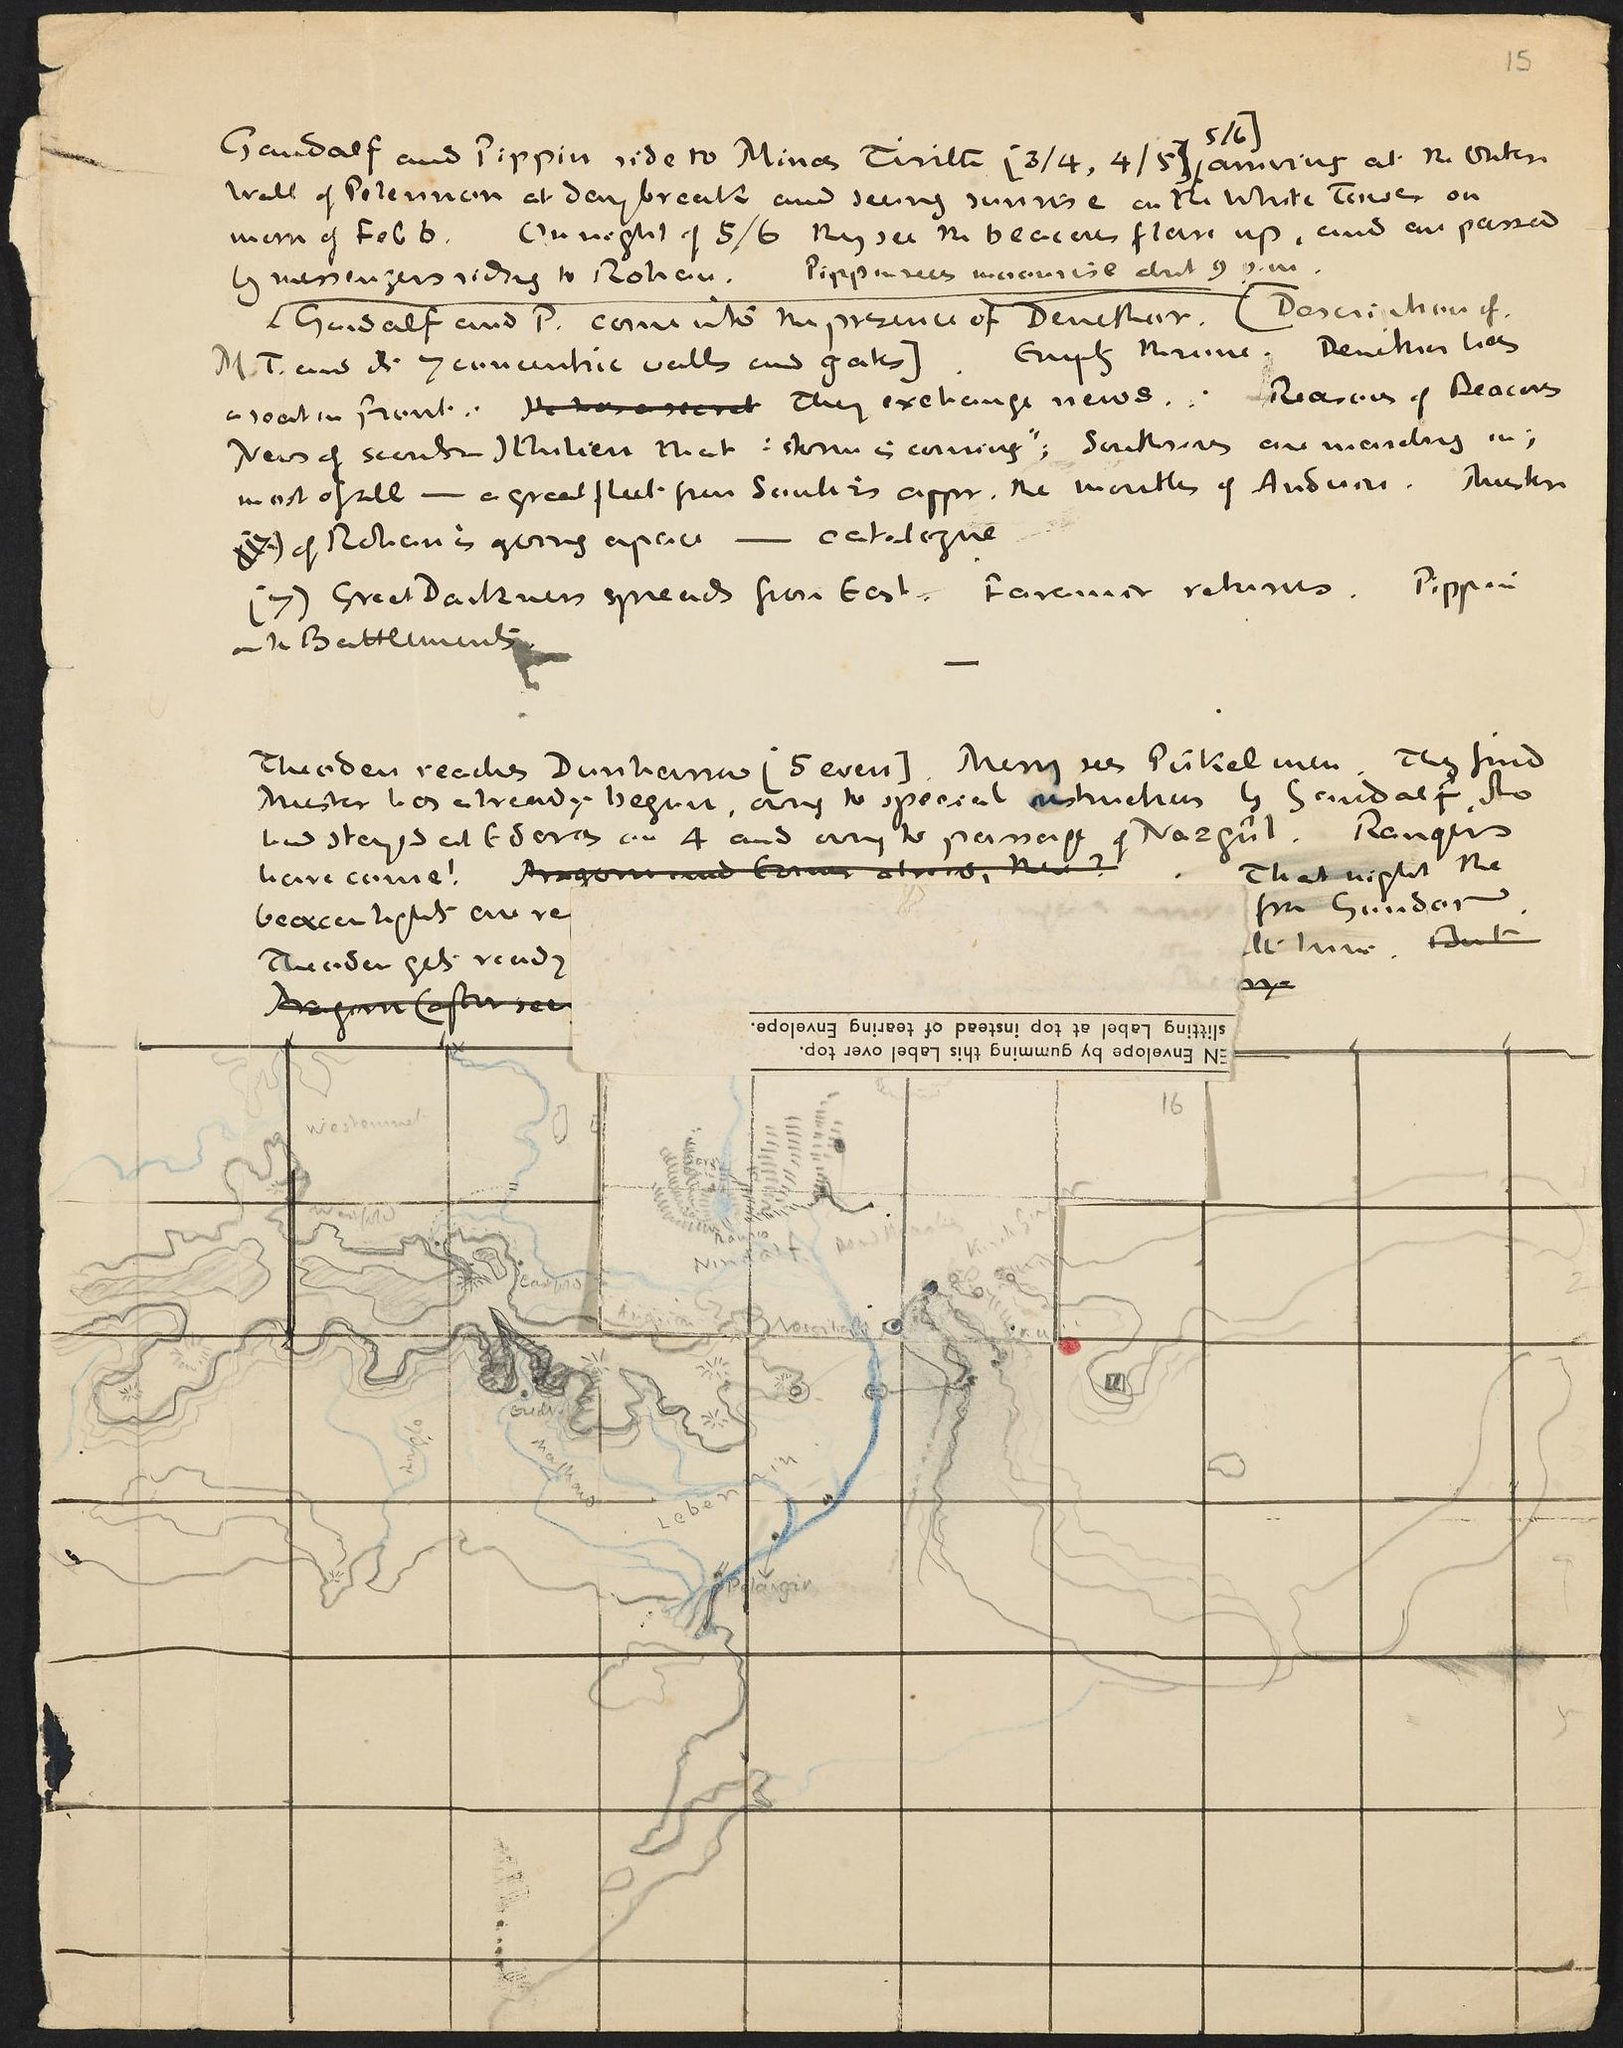 15
5/6]
Gandalf and Pippin ride to Minas Tirith [3/4, 4/5] arriving at the Outer
Wall of Pelennor at daybreak and seeing sunrise on the White Tower on
morn of Feb 6. On night of 5/6 they see the beacons flare up, and are passed
by messengers riding to Rohan. Pippin sees moonrise about 9 p.m.
[Gandalf and P. come into the presence of Denethor. (Description of
M.T. and its 7 concentric walls and gates] Empty throne. Denethor has
a seat in front. He has a secret They exchange news. Reasons of Beacons
News of scouts in Ithilien that 'storm is coming'; Southrons are marching in;
most of all — a great fleet from South is appr. the mouths of Anduin. Muster
of Rohan is going apace — catalogue
(7) Great Darkness spreads from East. Faramir returns. Pippin
on the Battlements.
Theoden reaches Dunharrow [5 even]. Merry sees Púkel men. They find
Muster has already begun, owing to special instructions by Gandalf, who
had stayed at Edoras on 4 and owing to passage of Nazgûl. Rangers
have come! Aragorn and Eomer That night the
beacon lights are re from Gondor.
Theoden gets ready But
Aragorn (after see
slitting Label at top instead of tearing Envelope.
EN Envelope by gumming this Label over top.
16
Westemnet
Westfold
Rauros
Nindalf
Dead Marshes
Eastfold
Anórien
Lossarnach
Erech
Morthond
Lebennin
Pelargir